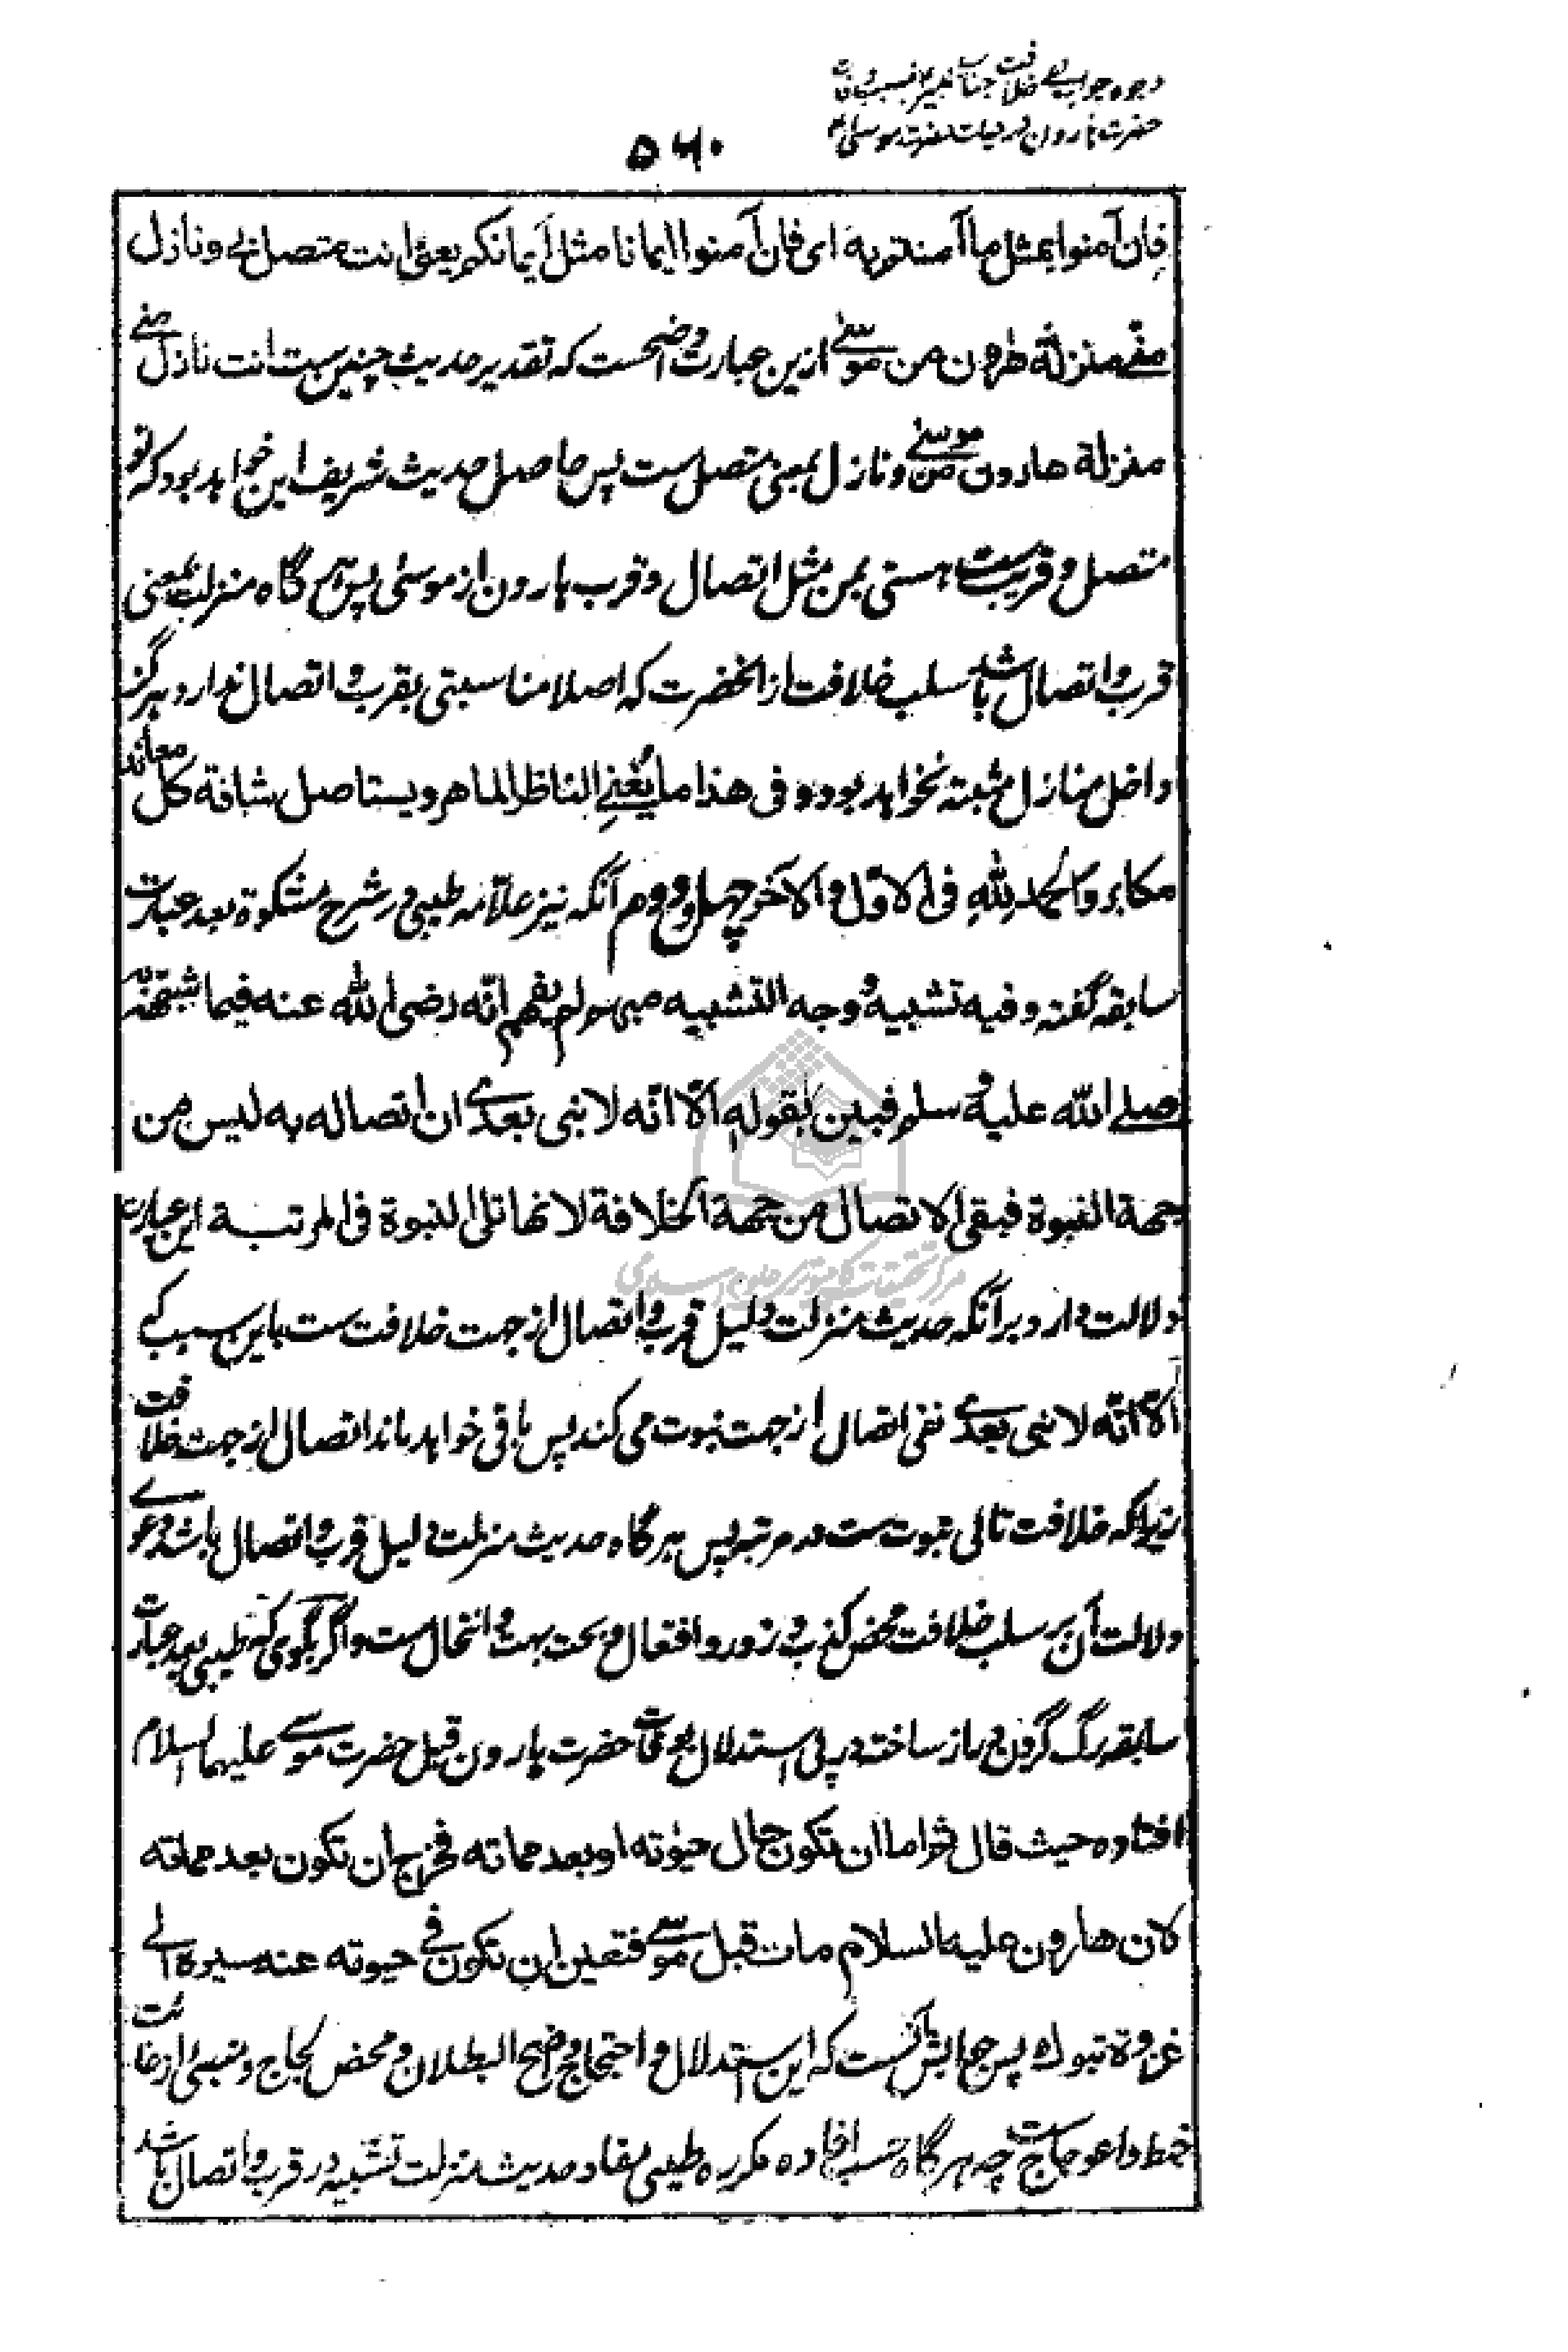 وجوه جواب نفی خلافت جناب امیر بسبب وفات
حضرت هارون در حیات حضرت موسی
۵۶۰
فان آمنوا بمثل ما آمنتم به ای فان آمنوا ایمانا مثل ایمانکم یعنی انت متصل بی و نازل
منی منزلة هارون من موسی ازین عبارت واضحست که تقدیر حدیث چنین ست انت نازل منی
منزلة هارون من موسی و نازل بمعنی متصل ست پس حاصل حدیث شریف این خواهد بود که تو
متصل و قریب هستی بمن مثل اتصال و قرب هارون از موسی پس هر گاه منزلت بمعنی
قرب و اتصال باشد سلب خلافت از آنحضرت که اصلا مناسبتی بقرب و اتصال ندارد هرگز
داخل منازل مثبته نخواهد بود و فی هذا ما یغنی الناظر الماهر و یستاصل شافة کل معاند
مکابر و الحمد لله فی الاول و الآخر چهل و دوم آنکه نیز علامه طیبی در شرح مشکوة بعد عبارت
سابقه گفته و فیه تشبیه و وجه التشبیه مبهم لم یفهم انه رضی الله عنه فیما شبهه به
صلے الله علیه و سلم فبین بقوله الا انه لا نبی بعدی ان اتصاله به لیس من
جهة النبوة فبقی الاتصال من جهة الخلافة لانها تلی النبوة فی المرتبة این عبارت
دلالت دارد بر آنکه حدیث منزلت دلیل قرب و اتصال از جهت خلافت ست باین سبب که
الا انه لا نبی بعدی نفی اتصال از جهت نبوت می کند پس باقی خواهد ماند اتصال از جهت خلافت
زیرا که خلافت تالی نبوت ست در مرتبه پس هر گاه حدیث منزلت دلیل قرب و اتصال باشد دعوی
دلالت آن بر سلب خلافت محض کذب و زور و افتعال و بحت بهت و انتحال ست و اگر بگوی که طیبی بعد عبارت
سابقه رگ گردن دراز ساخته در پی استدلال بوفات حضرت هارون قبل حضرت موسی علیهما السلام
افتاده حیث قال ثم اما ان تکون حال حیوته او بعد مماته فخرج ان تکون بعد مماته
لان هارون علیه السلام مات قبل موسی فتعین ان تکون فی حیوته عنه مسیره الی
غزوة تبوک پس جوابش آنست که این استدلال و احتجاج واضح البطلان و محض لجاج و منبئ از غایت
خبط و اعوجاج ست چه هر گاه حسب افاده مکرره طیبی مفاد حدیث منزلت تشبیه در قرب و اتصال باشد